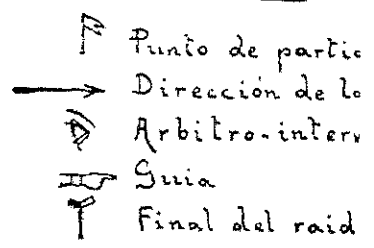 Punto de partic
Dirección de lo
Arbitro-interv
Guia
Final del raid